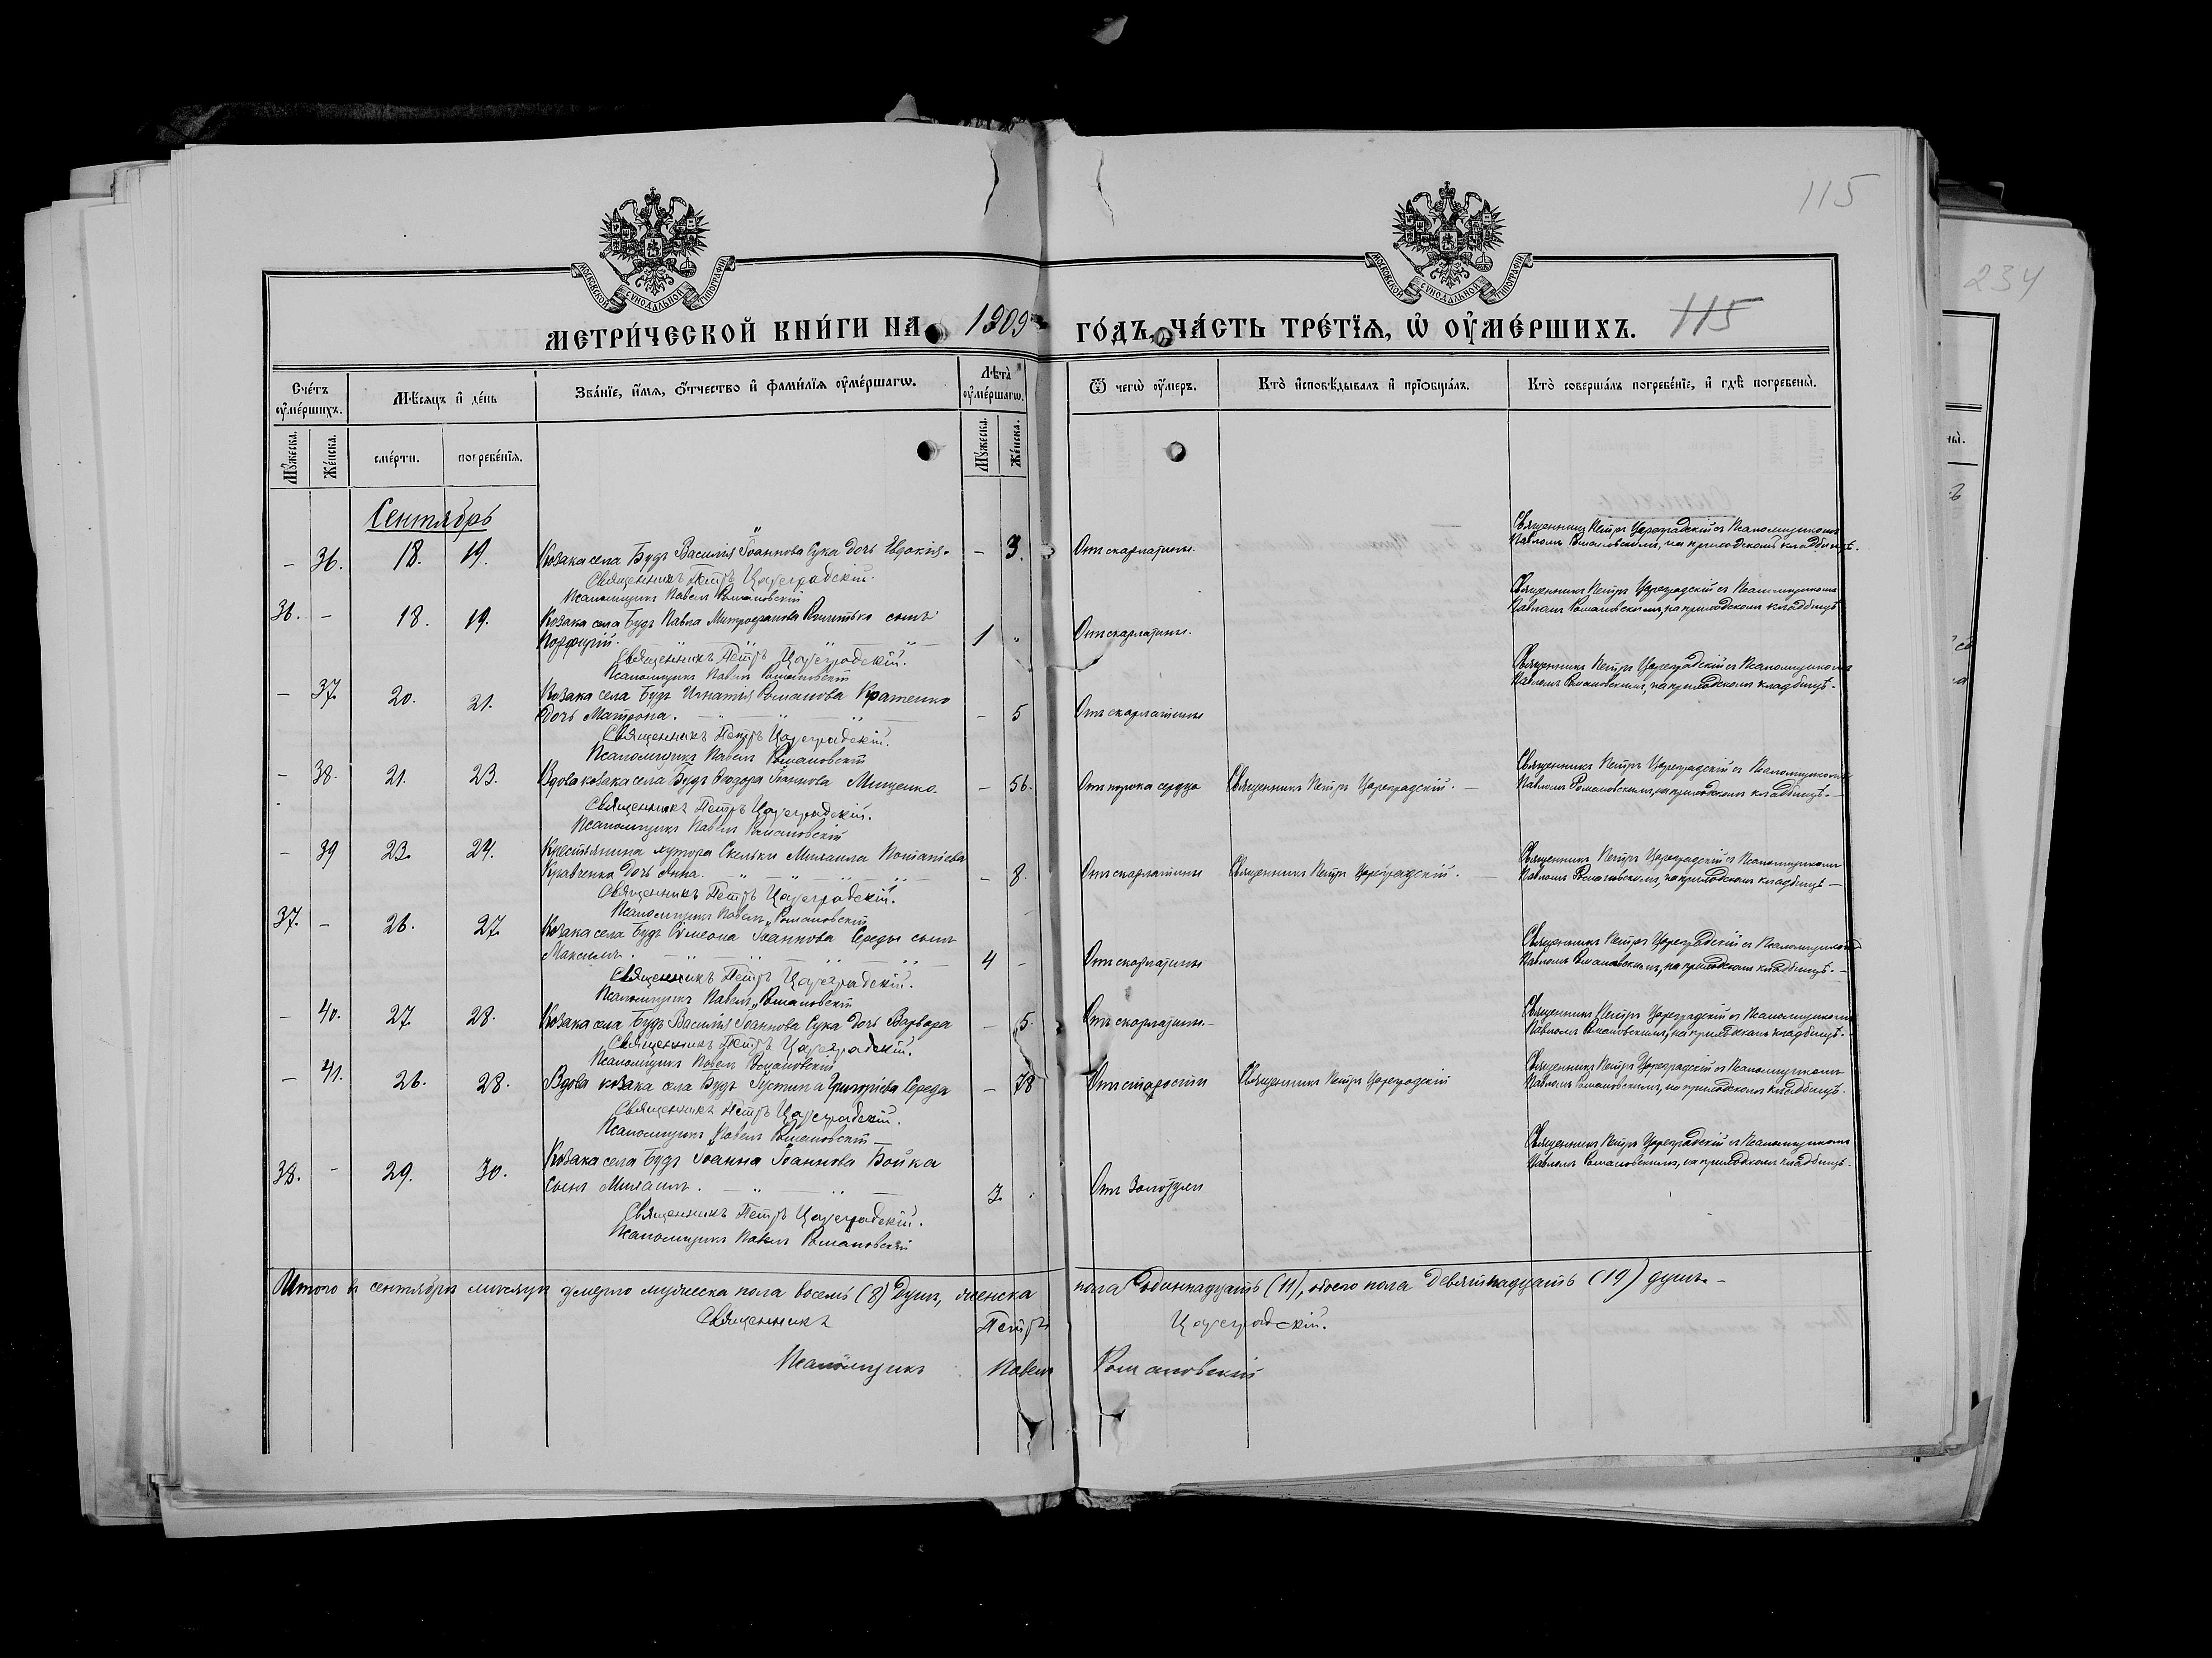 115
234
МОСКОВСКОЙ СУНОДАЛЬНОЙ ТИПОГРАФІИ
МОСКОВСКОЙ СУНОДАЛЬНОЙ ТИПОГРАФІИ
МЕТРИ́ЧЕСКОЙ КНИ́ГИ НА 1909 ГО́ДЪ, ЧА́СТЬ ТРЕ́ТЇѦ, Ѡ҆ ОУ҆МЕ́РШИХЪ. 115
Сче́тъ оу҆ме́ршихъ. Мѣ́сяцъ и҆ де́нь Зва́нїе, и҆́мѧ, ѻ҆́тчество и҆ фами́лїѧ оу҆ме́ршагѡ. Лѣта̀ оу҆ме́ршагѡ. Ѿ чегѡ̀ оу҆́меръ. Кто̀ и҆сповѣ́дывалъ и҆ прїѡбща́лъ. Кто̀ соверша́лъ погребе́нїе, и҆ гдѣ̀ погребены̀.
Мꙋ́жеска. Же́нска. сме́рти. погребе́нїѧ. Мꙋ́жеска. Же́нска.
Сентябрь
– 36. 18. 19. Козака села Будъ Василія Іоаннова Сука дочь Евдокія – 3. Отъ скарлатины. Священникъ Петръ Цареградскій съ Псаломщикомъ
Павломъ Романовскимъ, на приходскомъ кладбищѣ.
Священникъ Петръ Цареградскій.
Псаломщикъ Павелъ Романовскій
36. – 18. 19. Козака села Будъ Павла Митрофанова сынъ Священникъ Петръ Цареградскій съ Псаломщикомъ
Порфирій. 1 " Отъ скарлатины. Павломъ Романовскимъ, на приходскомъ кладбищѣ
Священникъ Петръ Цареградскій.
Псаломщикъ Павелъ Романовскій
– 37. 20. 21. Козака села Будъ Игнатія Романова Кратенко Священникъ Петръ Цареградскій съ Псаломщикомъ
дочь Матрона. – 5 Отъ скарлатины Павломъ Романовскимъ, на приходскомъ кладбищѣ.
Священникъ Петръ Цареградскій.
Псаломщикъ Павелъ Романовскій
– 38. 21. 23. Вдова козака села Будъ Іоаннова Мищенко. – 56. Отъ порока сердца Священникъ Петръ Цареградскій. Священникъ Петръ Цареградскій съ Псаломщикомъ
Павломъ Романовскимъ, на приходскомъ кладбищѣ.
Священникъ Петръ Цареградскій.
Псаломщикъ Павелъ Романовскій
– 39 23. 24. Крестьянина хутора Скельки Михаила Потапіева Священникъ Петръ Цареградскій съ Псаломщикомъ
Кравченка дочь Анна. – 8. Отъ скарлатины Священникъ Петръ Цареградскій. Павломъ Романовскимъ, на приходскомъ кладбищѣ
Священникъ Петръ Цареградскій.
Псаломщикъ Павелъ Романовскій
37. – 26. 27. Козака села Будъ Симеона Іоаннова Середы сынъ Священникъ Петръ Цареградскій съ Псаломщикомъ
Максимъ. 4 – Отъ скарлатины Павломъ Романовскимъ, на приходскомъ кладбищѣ.
Священникъ Петръ Цареградскій.
Псаломщикъ Павелъ Романовскій
– 40. 27. 28. Козака села Будъ Василія Іоаннова Сука дочь Варвара – 5. Отъ скарлатины. Священникъ Петръ Цареградскій съ Псаломщикомъ
Павломъ Романовскимъ, на приходскомъ кладбищѣ.
Священникъ Петръ Цареградскій.
Псаломщикъ Павелъ Романовскій
– 41. 26. 28. Вдова козака села Будъ Іустина Григоріева Середа – 78 Отъ старости Священникъ Петръ Цареградскій Священникъ Петръ Цареградскій съ Псаломщикомъ
Павломъ Романовскимъ, на приходскомъ кладбищѣ.
Священникъ Петръ Цареградскій.
Псаломщикъ Павелъ Романовскій
38. – 29. 30. Козака села Будъ Іоанна Іоаннова Бойка Священникъ Петръ Цареградскій съ Псаломщикомъ
сынъ Михаилъ. 3. Отъ Золотухи Павломъ Романовскимъ, на приходскомъ кладбищѣ.
Священникъ Петръ Цареградскій.
Псаломщикъ Павелъ Романовскій
Итого въ сентябрѣ мѣсяцѣ умерло мужеска пола восемь (8) душъ, женска пола одиннадцать (11), обоего пола девятнадцать (19) душъ.
Священникъ Петръ Цареградскій.
Псаломщикъ Павелъ Романовскій